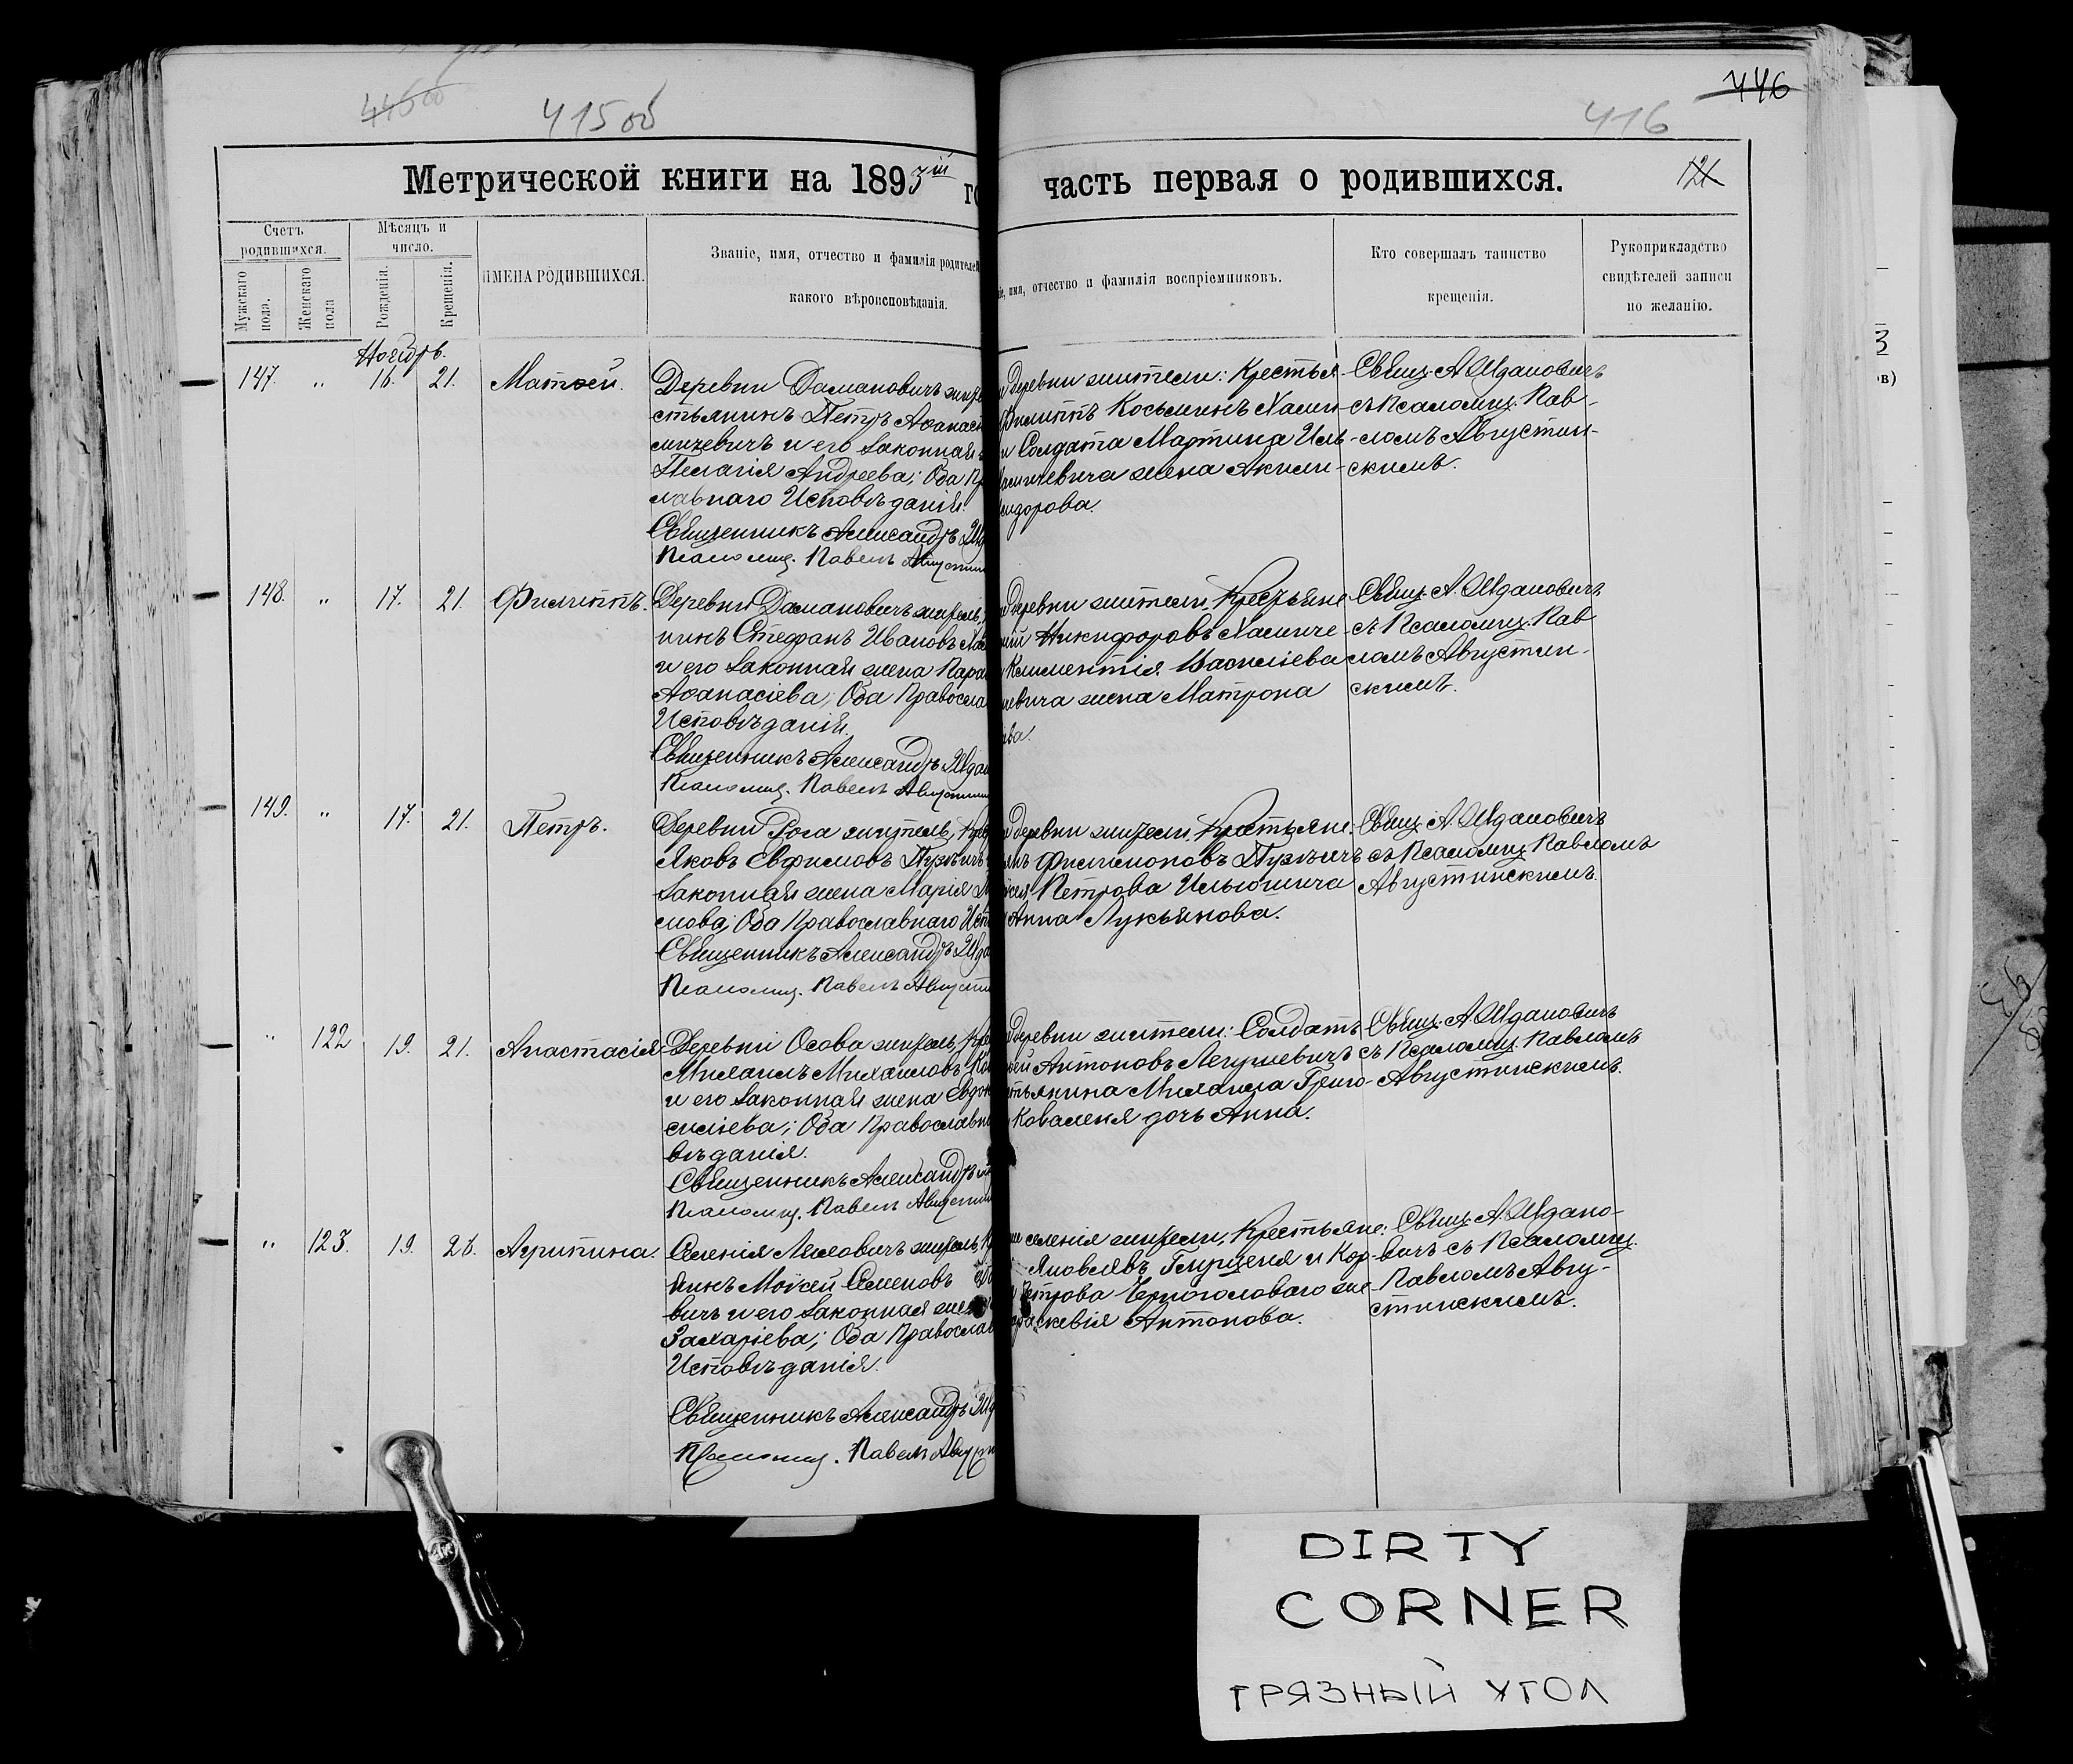 415 об
416
446
Метрической книги на 1893 ій го
часть первая о родившихся.
121
Счетъ родившихся.
Мужскаго пола.
Женскаго пола
Мѣсяцъ и число.
Рожденія.
Крещенія.
ИМЕНА РОДИВШИХСЯ.
Званіе, имя, отчество и фамилія родителей
какого вѣроисповѣданія.
имя, отчество и фамилія воспріемниковъ.
Кто совершалъ таинство
крещенія.
Рукоприкладство
свидѣтелей записи
по желанію.
Ноябрь.
147. " 16. 21. Матѳей.
Деревни Дамановичъ жите
стьянинъ Петръ Аѳанась
мичевичъ и его законная
Пелагія Андреева; Оба Пр
лавнаго Исповѣданія.
Священникъ Александръ Жд
Псаломщ. Павелъ Августин
деревни жители: Крестья-
Филиппъ Косьминъ Хами-
и Солдата Мартина Иль-
Хамичевича жена Акили-
сидорова.
Свящ. А. Ждановичъ
съ Псаломщ. Пав-
ломъ Августин-
скимъ.
148. " 17. 21. Филиппъ.
Деревни Дамановичъ житель,
нинъ Стефанъ Ивановъ Ха
и его законная жена Пара
Аѳанасіева; Оба Правосла
Исповѣданія.
Священникъ Александръ Ждан
Псаломщ. Павелъ Августин
деревни жители, Крестьяне
Никифоровъ Хамиче-
Климентія Василіева
евича жена Матрона
ева.
Свящ. А. Ждановичъ
съ Псаломщ. Пав
ломъ Августин-
скимъ.
149. " 17. 21. Петръ.
Деревни Рога житель, Кре
Яковъ Евфимовъ Пузѣичъ
законная жена Марія
мова; Оба Православнаго Исп
Священникъ Александръ Жда
Псаломщ. Павелъ Августи
деревни жители, Крестьяне:
Филимоновъ Пузѣичъ
Петрова Ильюшича
Анна Лукьянова.
Свящ. А. Ждановичъ
съ Псаломщ. Павломъ
Августинскимъ.
" 122 19. 21. Анастасія
Деревни Осова житель, Кре
Михаилъ Михаиловъ Ко
и его законная жена Евдок
силіева; Оба Православн
вѣданія.
Священникъ Александръ
Псаломщ. Павелъ Августин
деревни жители: Солдатъ
Антоновъ Легушевичъ
стьянина Михаила Григо-
Коваленя дочь Анна.
Свящ. А. Ждановичъ
съ Псаломщ. Павломъ
Августинскимъ.
" 123. 19. 28. Агрипина.
Селенія Ляховичъ житель, Кр
янинъ Моѵсей Семеновъ
вичъ и его законная жена
Захаріева; Оба Православ
Исповѣданія.
Священникъ Александръ Жд
Псаломщ. Павелъ Августи
селенія жители, Крестьяне:
Яковлевъ Глущеня и Кор-
Петрова Черноголоваго же-
Параскевія Антонова.
Свящ. А. Ждано-
вичъ съ Псаломщ.
Павломъ Авгу-
стинскимъ.
DIRTY
CORNER
ГРЯЗНЫЙ УГОЛ